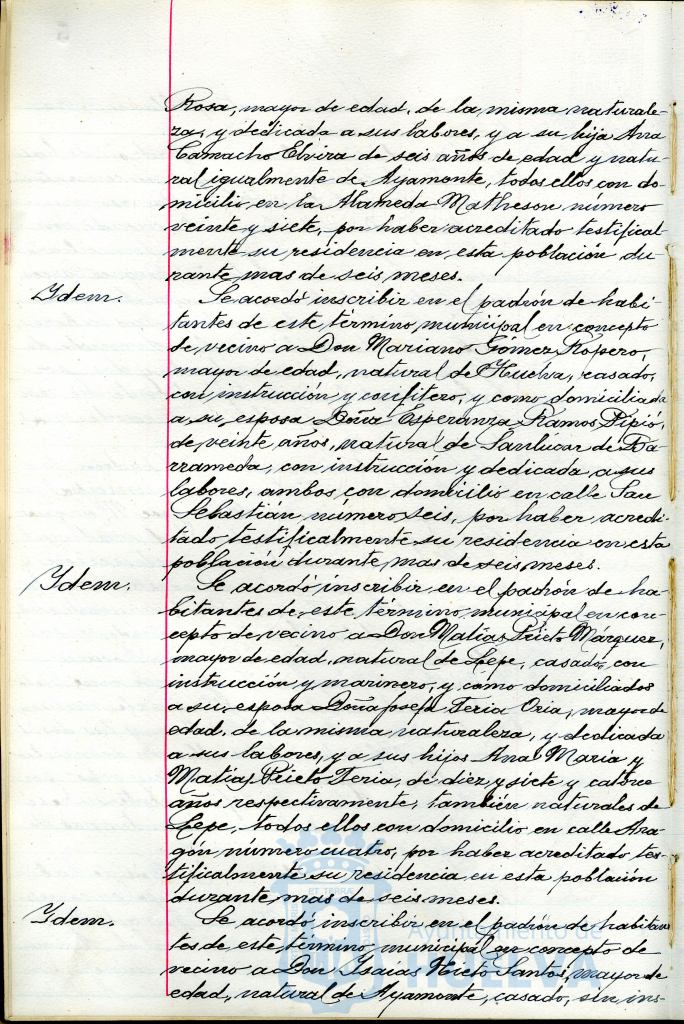 Rosa, mayor de edad, de la misma naturale-
za, y dedicada a sus labores, y a su hija Ana
Camacho Elvira de seis años de edad y natu-
ral igualmente de Ayamonte, todos ellos con do-
micilio en la Alameda Matheson número
veinte y siete, por haber acreditado testifical-
mente su residencia en esta población du-
rante mas de seis meses.
Ydem.
Se acordó inscribir en el padrón de habi-
tantes de este término municipal en concepto
de vecino a Don Mariano Gómez Ropero,
mayor de edad, natural de Huelva, casado,
con instrucción y confitero, y como domiciliada
a su esposa Doña Esperanza Ramos Pipió,
de veinte años, natural de Sanlúcar de Ba-
rrameda, con instrucción y dedicada a sus
labores, ambos con domicilio en calle San
Sebastián número seis, por haber acredi-
tado testificalmente su residencia en esta
población durante mas de seis meses.
Ydem.
Se acordó inscribir en el padrón de ha-
bitantes de este término municipal en con-
cepto de vecino a Don Matías Prieto Márquez,
mayor de edad, natural de Lepe, casado, con
instrucción y marinero, y como domiciliados
a su esposa Doña Josefa Feria Oria, mayor de
edad, de la misma naturaleza, y dedicada
a sus labores, y a sus hijos Ana María y
Matías Prieto Feria, de diez y siete y catorce
años respectivamente, también naturales de
Lepe, todos ellos con domicilio en calle Ara-
gón número cuatro, por haber acreditado tes-
tificalmente su residencia en esta población
durante mas de seis meses.
Ydem.
Se acordó inscribir en el padrón de habitan-
tes de este término municipal en concepto de
vecino a Don Isaías Nieto Santos, mayor de
edad, natural de Ayamonte, casado, sin ins-
ET TERRÆ
Ayuntamiento de
HUELVA